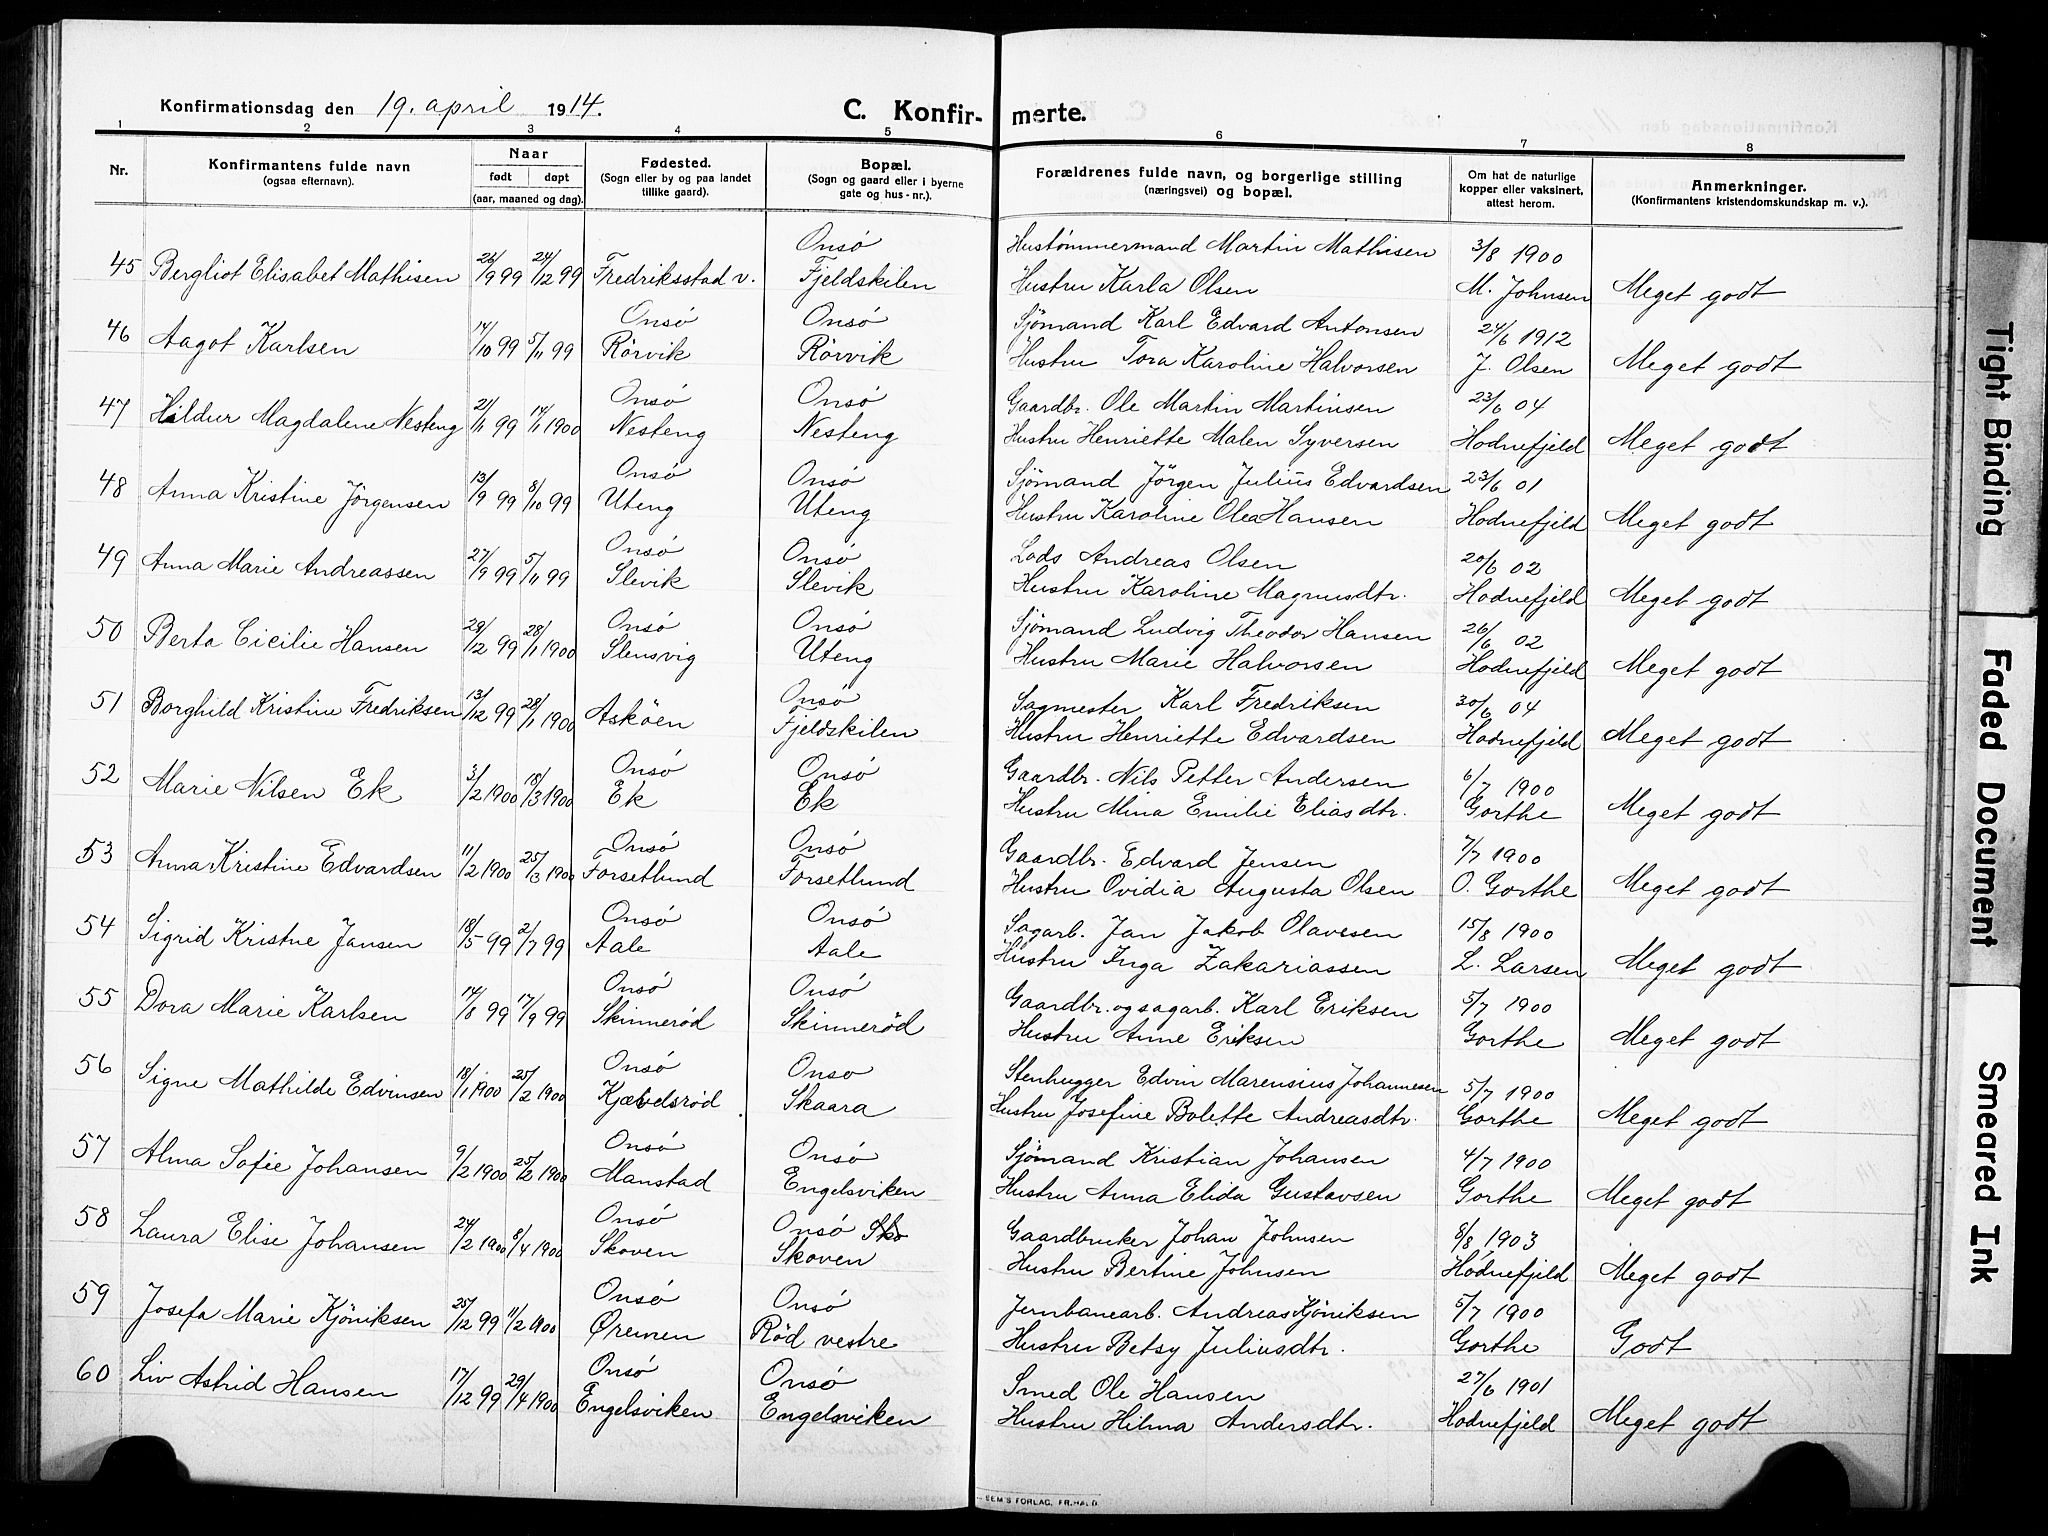 Konfirmationsdag den 19. april 1914.
C. Konfir- merte.
1 2 3 4 5 6 7 8
Nr.
Konfirmantens fulde navn
(ogsaa efternavn).
Naar
født døpt
(aar, maaned og dag).
Fødested.
(Sogn eller by og paa landet
tillike gaard).
Bopæl.
(Sogn og gaard eller i byerne
gate og hus-nr.).
Forældrenes fulde navn, og borgerlige stilling
(næringsvei) og bopæl.
Om hat de naturlige
kopper eller vaksinert,
attest herom.
Anmerkninger.
(Konfirmantens kristendomskundskap m. v.).
Onsö Hustømmermand Martin Mathisen 3/8 1900
45 Bergliot Elisabet Mathisen 26/9 99 24/12 99 Fredriksstad v. Fjeldskilen Hustru Karla Olsen M. Johnsen Meget godt
Onsö Onsö Sjömand Karl Edvard Antonsen 24/6 1912
46 Aagot Karlsen 14/10 99 5/11 99 Rörvik Rörvik Hustru Tora Karoline Halvorsen J. Olsen Meget godt
Onsö Onsö Gaardbr. Ole Martin Martinsen 23/6 04
47 Hildur Magdalene Nesteng 21/11 99 14/1 1900 Nesteng Nesteng Hustru Henriette Malen Syversen Hodnefjeld Meget godt
Onsö Onsö Sjömand Jörgen Julius Edvardsen 23/6 01
48 Anna Kristine Jörgensen 13/9 99 8/10 99 Uteng Uteng Hustru Karoline Olea Hansen Hodnefjeld Meget godt
Onsö Onsö Lods Andreas Olsen 20/6 02
49 Anna Marie Andreassen 27/9 99 5/11 99 Slevik Slevik Hustru Karoline Magnusdtr. Hodnefjeld Meget godt
Onsö Onsö Sjömand Ludvig Theodor Hansen 26/6 02
50 Berta Cicilie Hansen 29/12 99 28/1 1900 Slensvig Uteng Hustru Marie Halvorsen Hodnefjeld Meget godt
Onsö Sagmester Karl Fredriksen 30/6 04
51 Borghild Kristine Fredriksen 13/12 99 28/1 1900 Asköen Fjeldskilen Hustru Henriette Edvardsen Hodnefjeld Meget godt
Onsö Onsö Gaardbr. Nils Petter Andersen 6/7 1900
52 Marie Nilsen Ek 3/2 1900 18/3 1900 Ek Ek Hustru Mina Emilie Eliasdtr. Gorthe Meget godt
Onsö Onsö Gaardbr. Edvard Jensen 7/7 1900
53 Anna Kristine Edvardsen 11/2 1900 25/3 1900 Forsetlund Forsetlund Hustru Ovidia Augusta Olsen O. Gorthe Meget godt
Onsö Onsö Sagarb. Jan Jakob Olavesen 15/8 1900
54 Sigrid Kristne Jansen 18/5 99 2/7 99 Aale Aale Hustru Inga Zakariassen L. Larsen Meget godt
Onsö Onsö Gaardbr. og sagarb. Karl Eriksen 5/7 1900
55 Dora Marie Karlsen 14/8 99 17/9 99 Skinneröd Skinneröd Hustru Anne Eriksen Gorthe Meget godt
Onsö Onso Stenhugger Edvin Marensius Johannesen 5/7 1900
56 Signe Mathilde Edvinsen 18/1 1900 25/2 1900 Kjævelsröd Skaara Hustru Josefine Bolette Andreasdtr. Gorthe Meget godt
Onsö Onsö Sjömand Kristian Johansen 4/7 1900
57 Alma Sofie Johansen 9/2 1900 25/2 1900 Manstad Engelsviken Hustru Anna Elida Gustavsen Gorthe Meget godt
Onsö Onsö Sko Gaardbruker Johan Johnsen 8/8 1903
58 Laura Elise Johansen 24/2 1900 8/4 1900 Skoven Skoven Hustru Bertine Johnsen Hodnefjeld Meget godt
Onsö Onsö Jernbanearb. Andreas Kjöniksen 5/7 1900
59 Josefa Marie Kjöniksen 25/12 99 11/2 1900 Øremen Röd vestre Hustru Betsy Juliusdtr. Gorthe Godt
Onsö Onsö Smed Ole Hansen 27/6 1901
60 Liv Astrid Hansen 17/12 99 29/4 1900 Engelsviken Engelsviken Hustru Hilma Andersdtr. Hodnefjeld Meget godt
SEM'S FORLAG, FR.HALD
Tight Binding
Faded Document
Smeared Ink